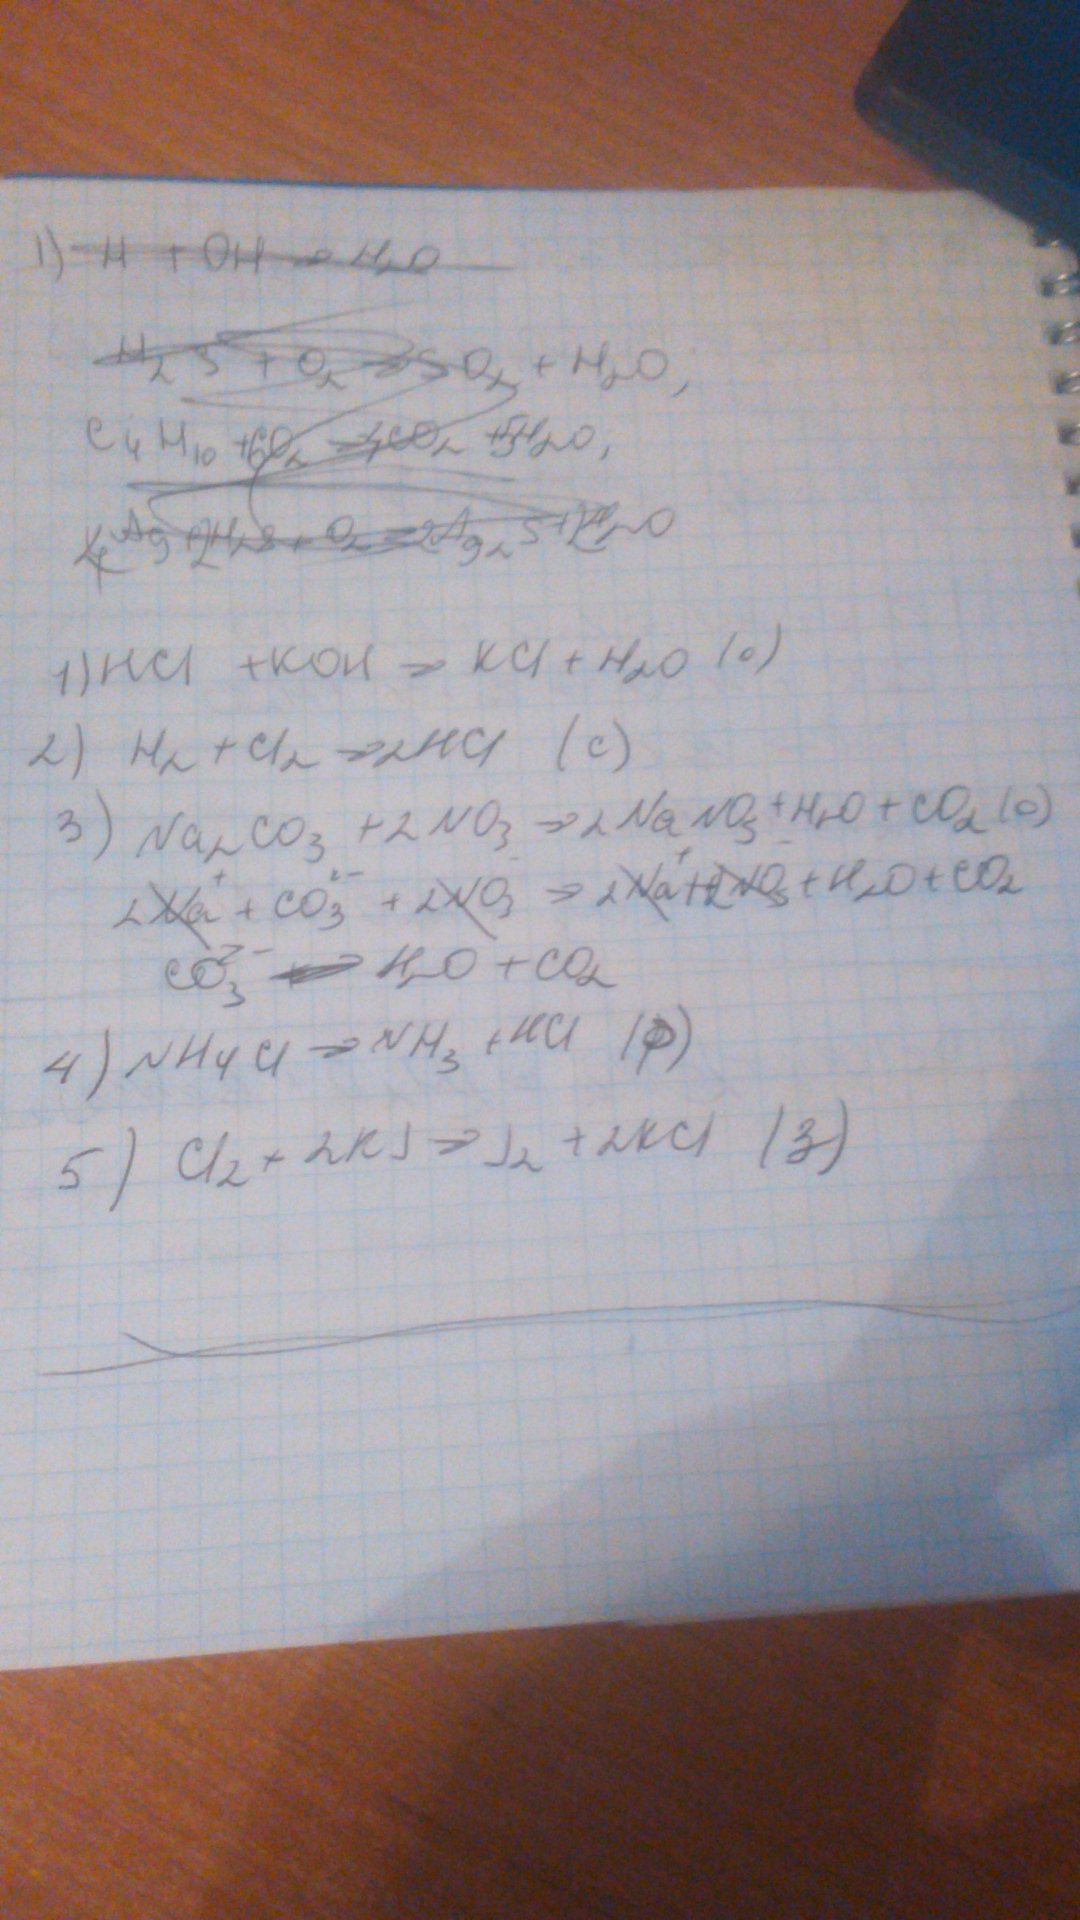 1) H + OH → H2O
H2S + O2 → SO2 + H2O,
C4H10 + CO2 → 4CO2 + 5H2O,
4Ag + 2H2S + O2 → 2Ag2S + 2H2O
1) HCl + KOH → KCl + H2O (о)
2) H2 + Cl2 → 2HCl (с)
3) Na2CO3 + 2NO3 → 2NaNO3 + H2O + CO2 (о)
2Na⁺ + CO3²⁻ + 2NO3⁻ → 2Na⁺ + 2NO3⁻ + H2O + CO2
CO3²⁻ → H2O + CO2
4) NH4Cl → NH3 + HCl (р)
5) Cl2 + 2KJ → J2 + 2KCl (з)